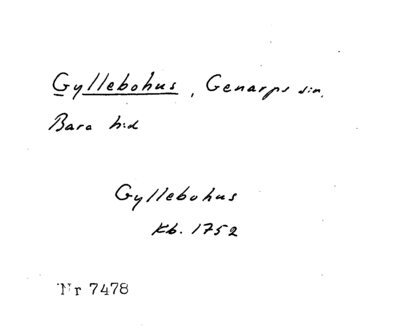 Gyllebohus, Genarps sn.
Bara hd
Gyllebohus
Kb. 1752
Nr 7478